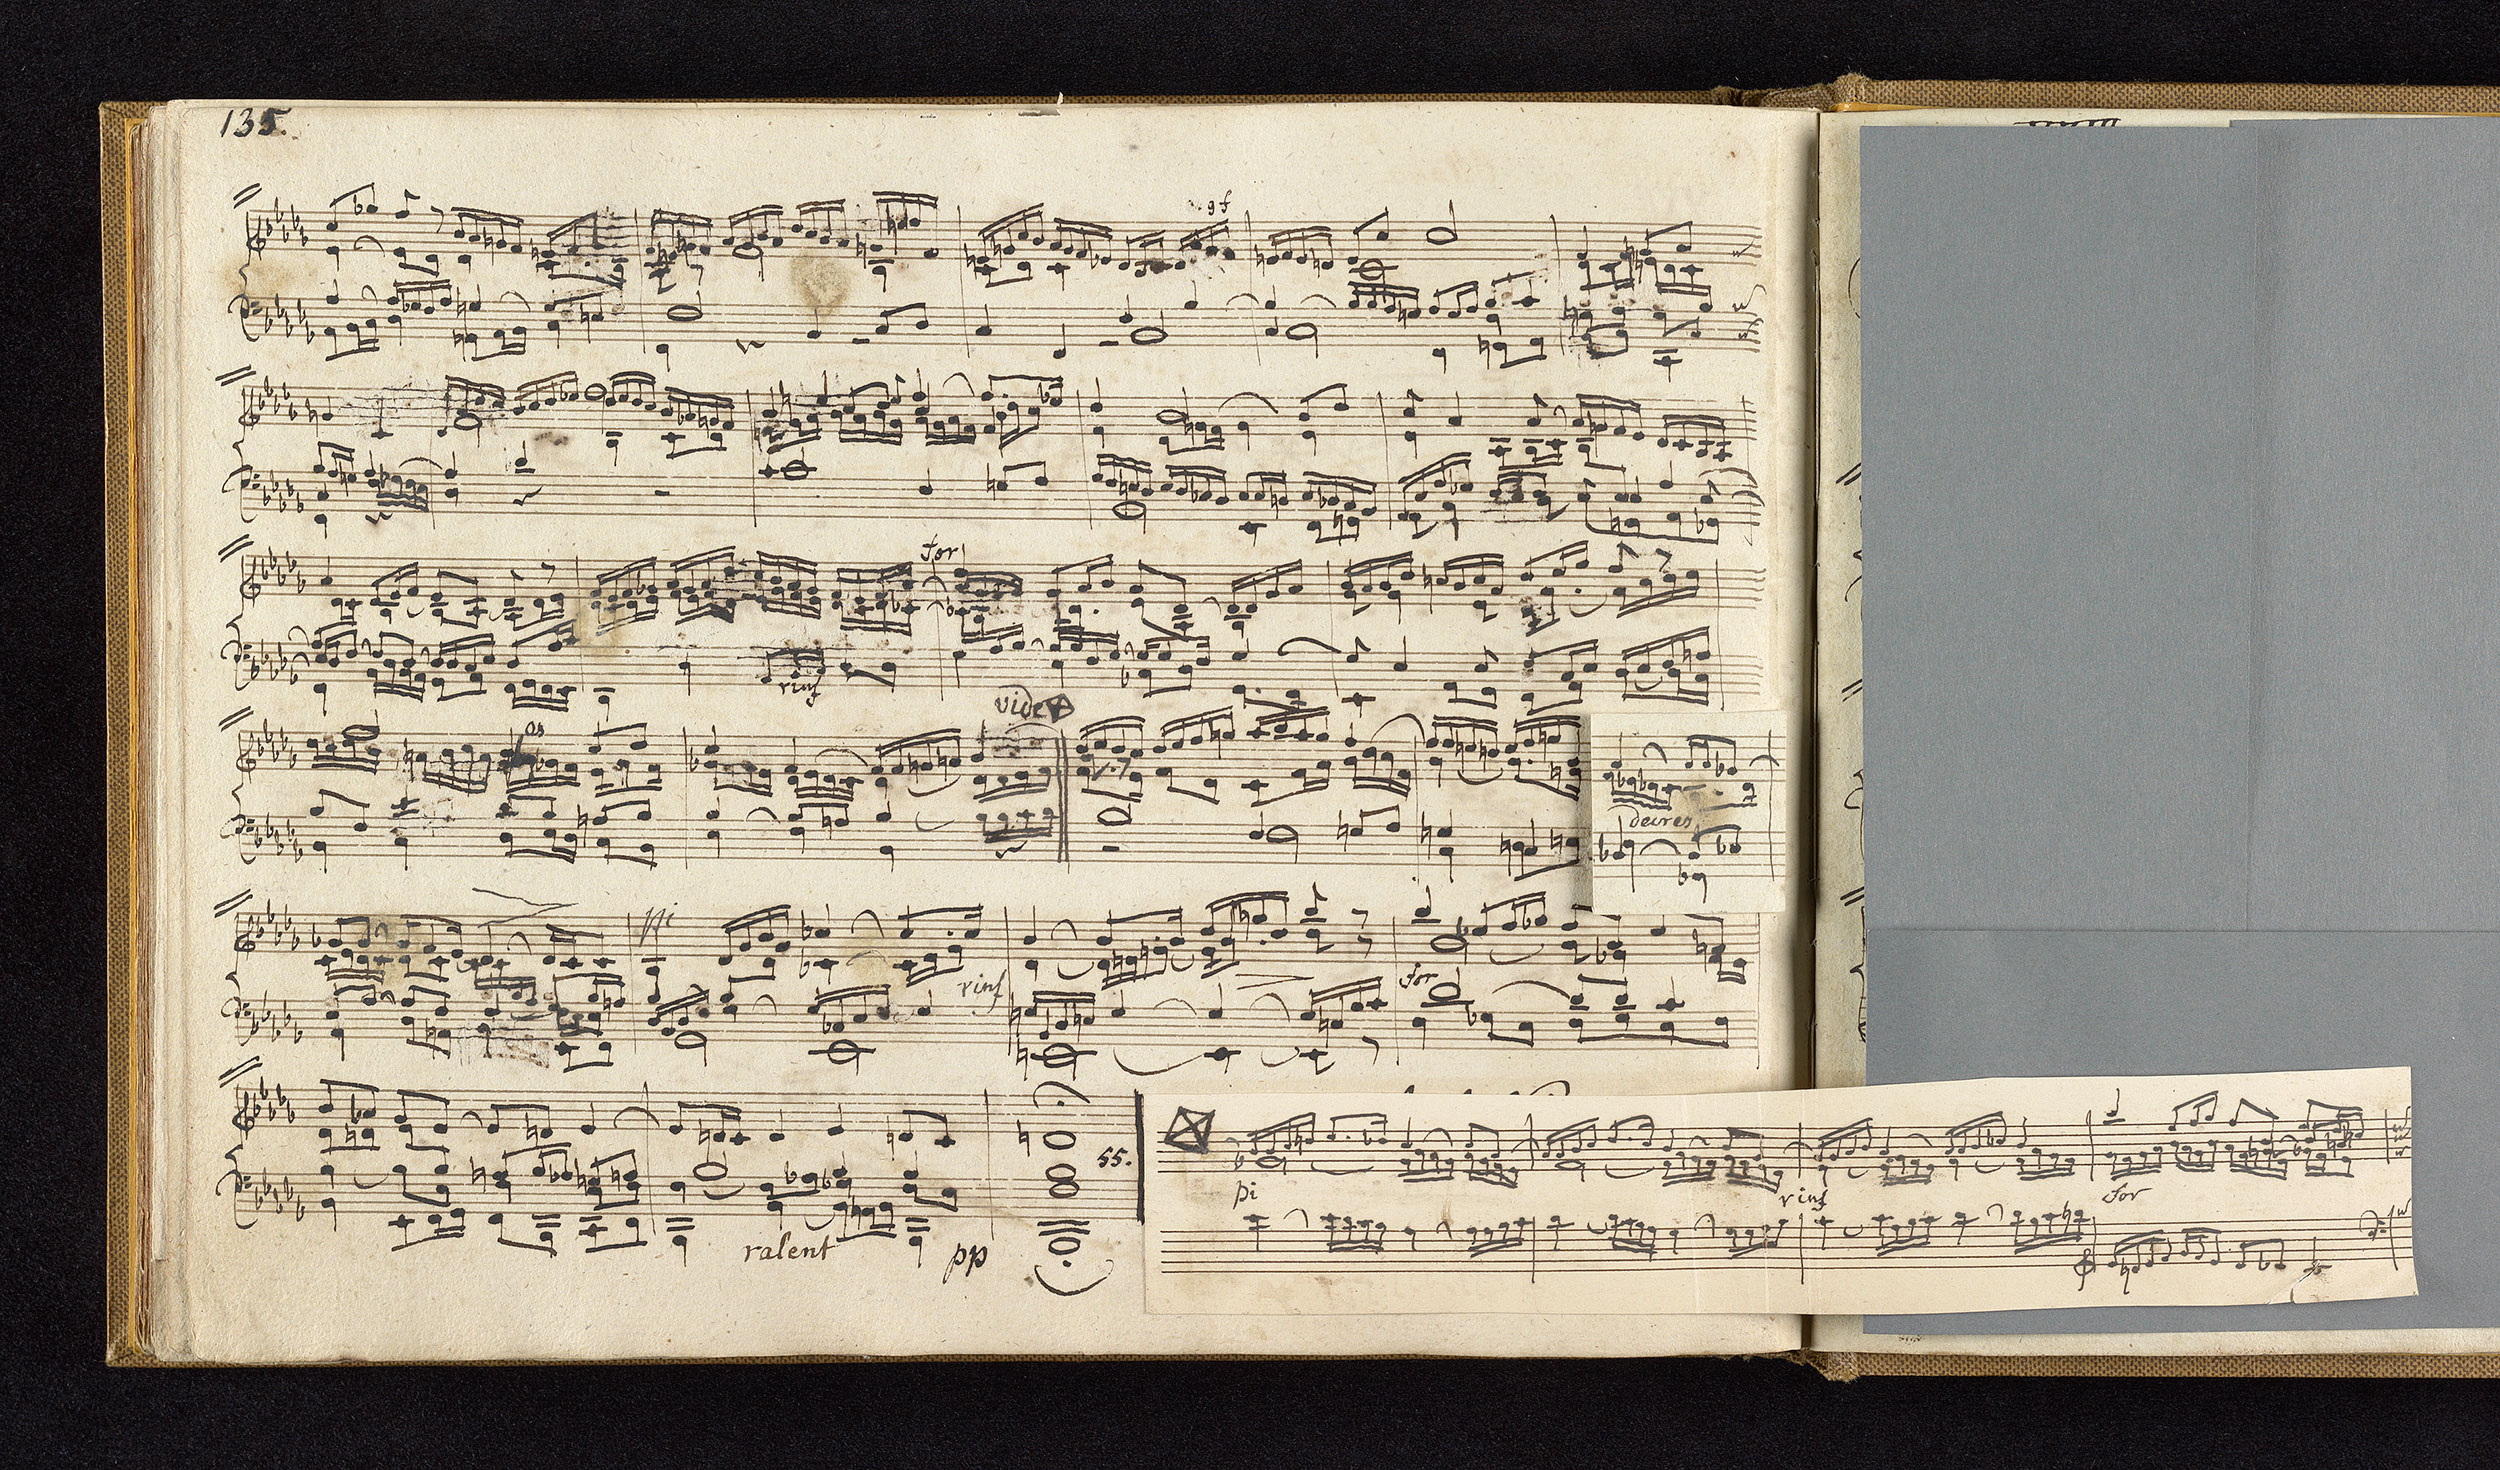 135.
for
rinf
vide
as
decres
pi
rinf
for
55.
pi
rinf
for
ralent
pp